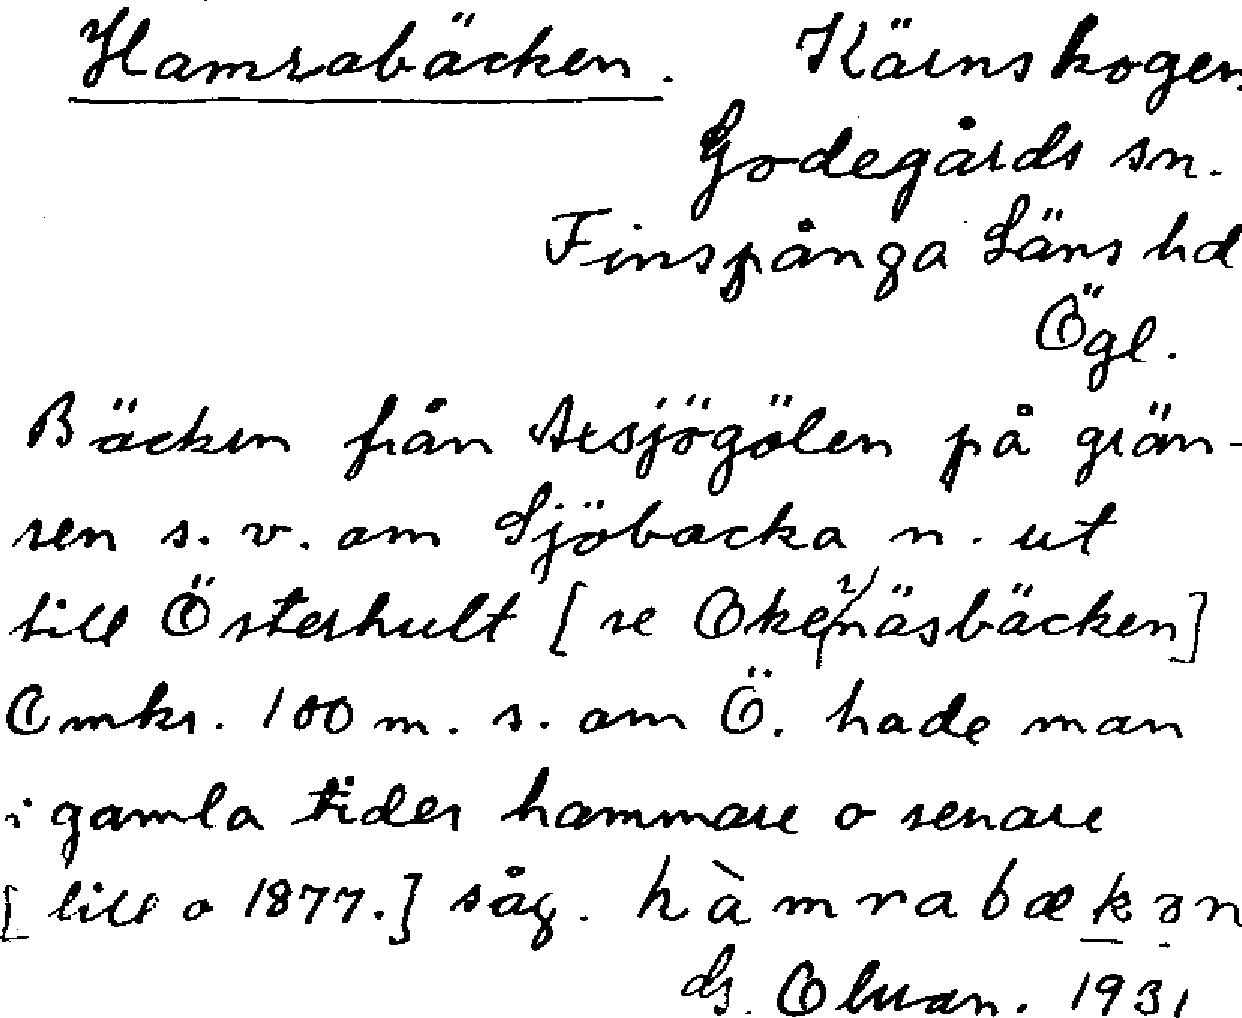 Hamrabäcken. Kärnskogen
Godegårds sn.
Finspånga Läns hd
Ögl.
Bäcken från Arsjögölen på grän-
sen s. v. om Sjöbacka n. ut
till Österhult [se Okernäsbäcken]
Omkr. 100 m. s. om Ö. hade man
i gamla tider hammare o senare
[till o 1877.] såg. hàmrabækən
G. 1931